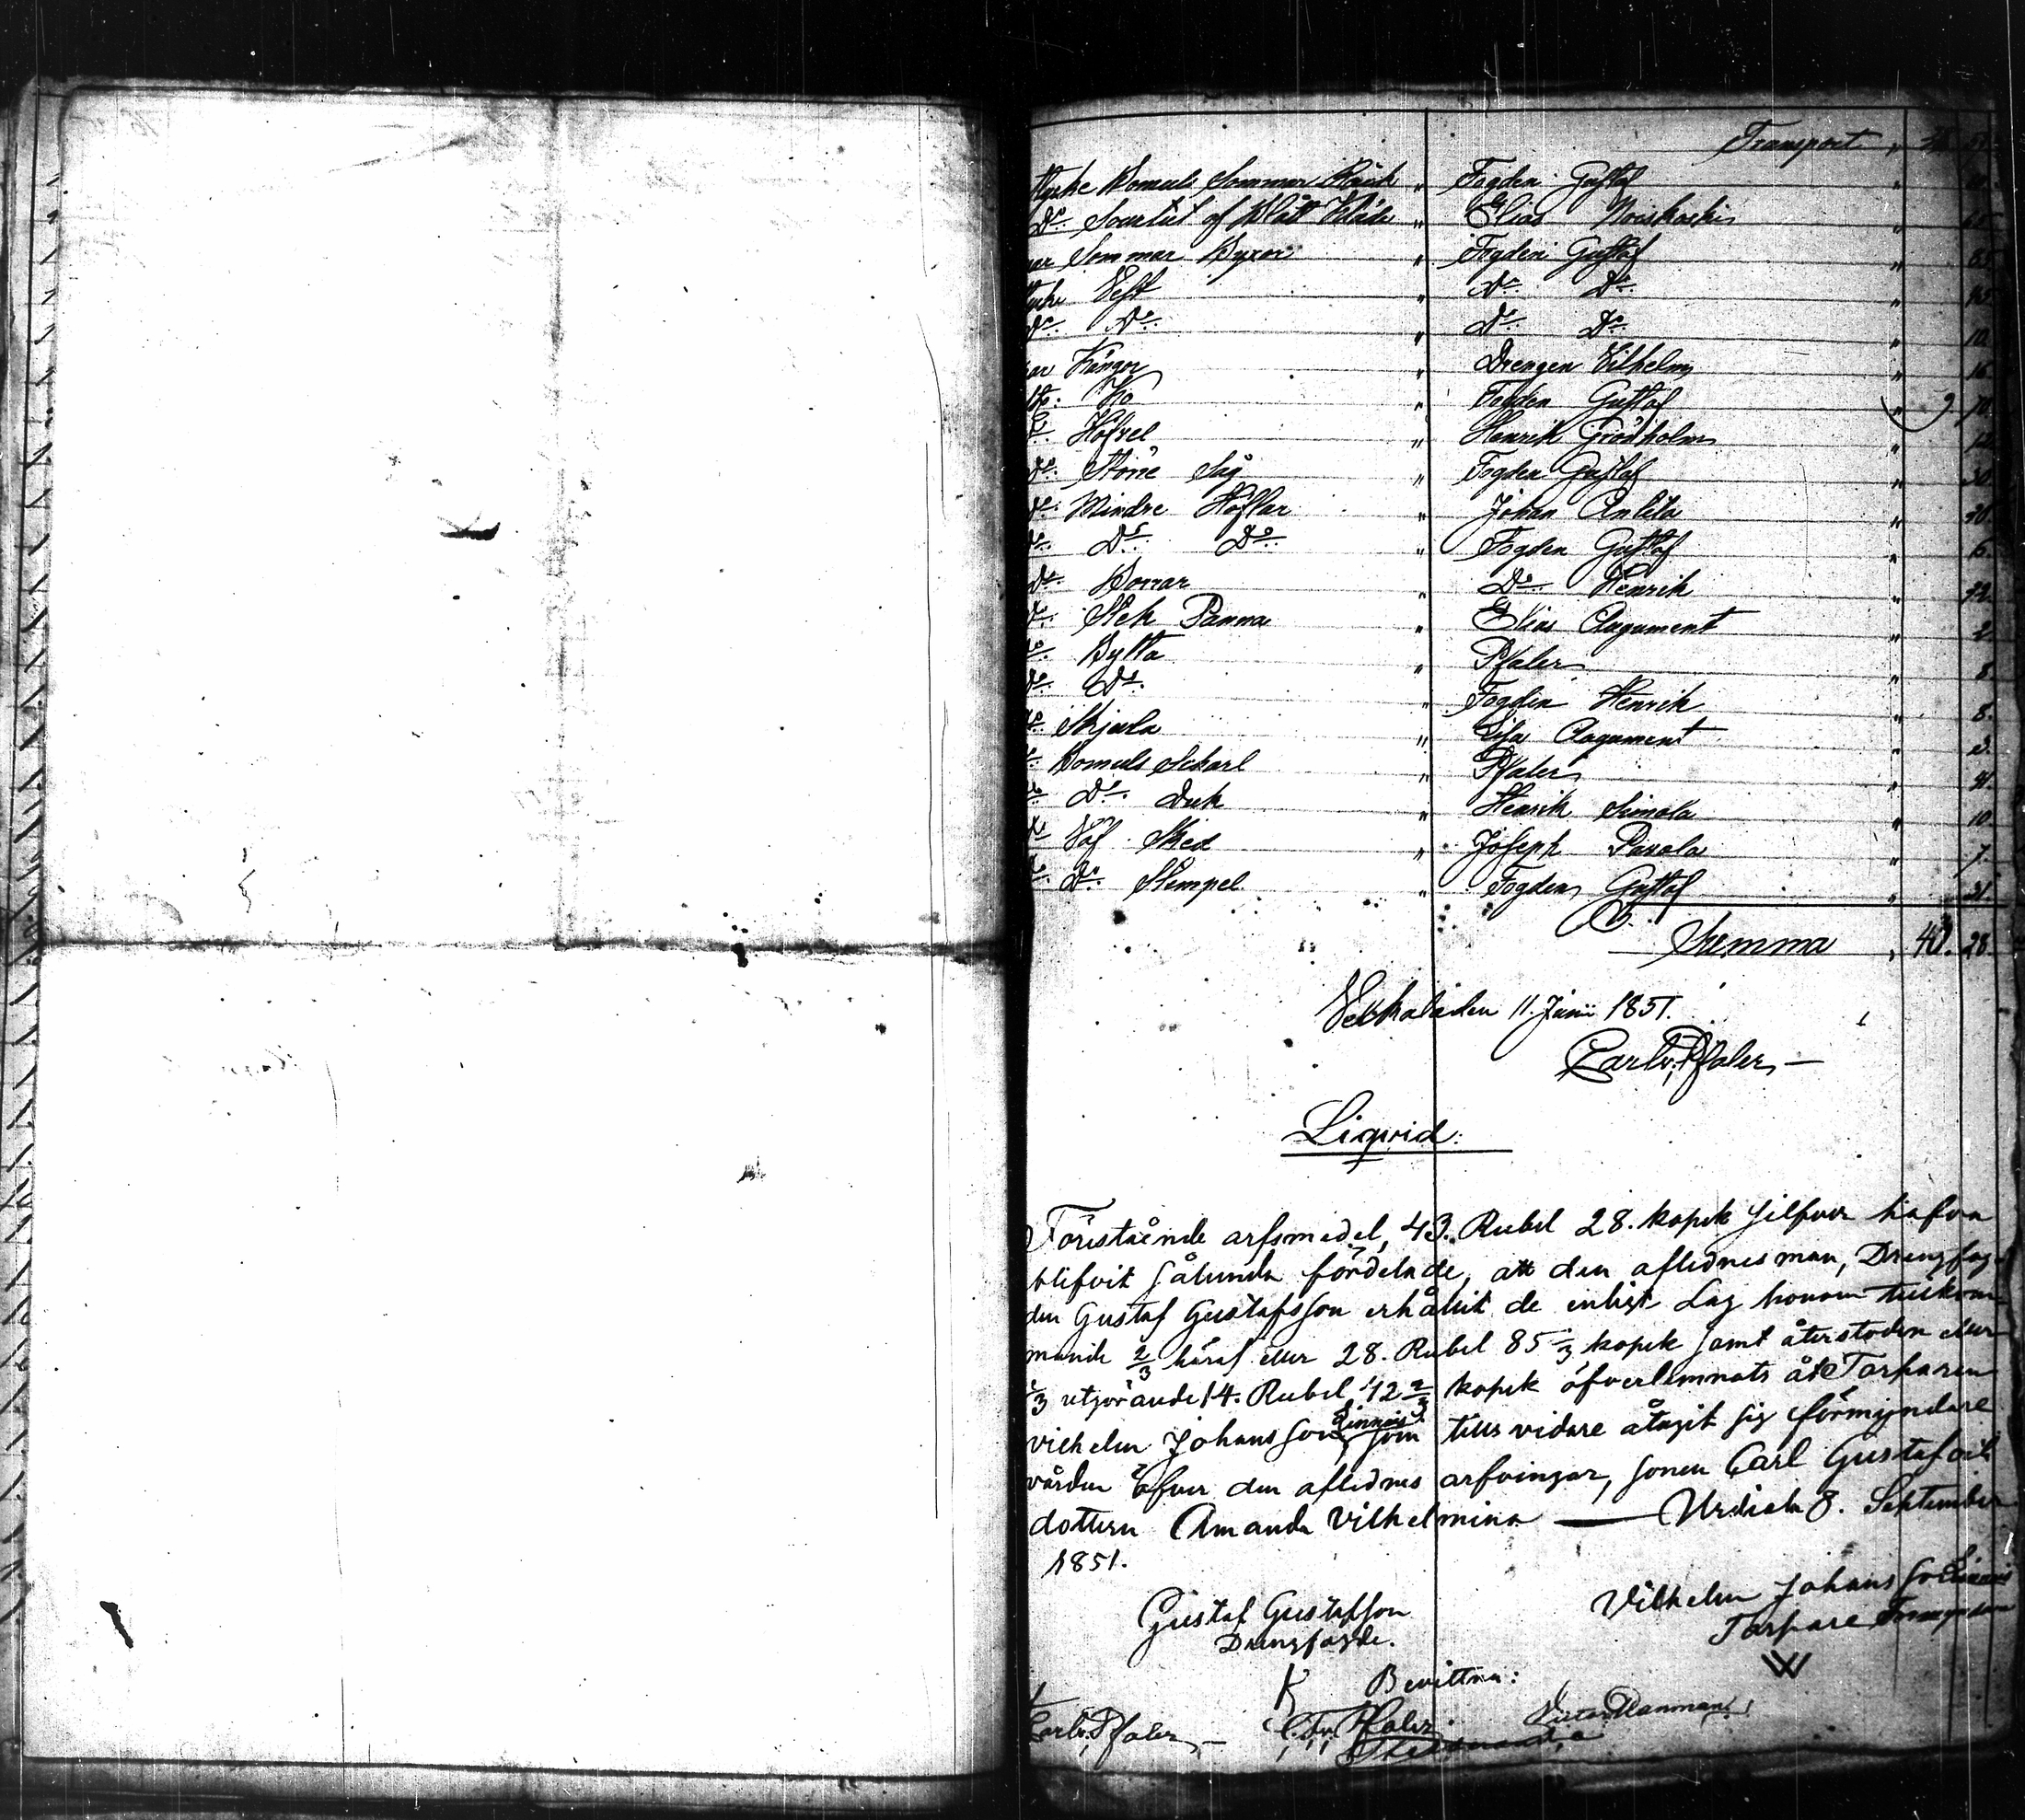 Transport " 
stycke Bomuls Sommar " Fogden Gustaf "
Do. af Blått Kläde " Elias " 65.
par Sommar Byxor " Fogden Gustaf " 65.
stycke Vest " Do. Do. "
Do. Do. " Do. Do. " 10.
par Kängor " Drengen Vilhelm " 16.
Ko " Fogden Gustaf " 9 70.
Höfvel " Henrik Grönholm " 12.
Do. Större Såg " Fogden Gustaf " 30.
Do. Mindre Höflar " Johan Anlila " 30.
Do. Do. Do. " Fogden Gustaf " 6.
Do. Borrar " Do. Henrik " 32.
Do. Stek Panna " Elias Augument " 2.
Do. Bytta " Pfaler " 8.
Do. Do. " Fogden Henrik " 8.
Do. Skjula " Lisa Augument " 3.
Do. Bomuls Scharl " Pfaler " 41.
Do. Do. Duk " Henrik Simola " 10.
Do. Väf Sked " Joseph Pavola " 7.
Do. Do. Stempel " Fogden Gustaf " 31.
Summa " 43. 28.
11. Junii 1851.
Carl v. Pfaler
Liqvid:
Förestående arfsmedel, 43. Rubel 28. kopek Silfver hafva
blifvit sålunda fördelade, att den aflednes man, Drengfog-
den Gustaf Gustafsson erhållit de enligt Lag honom tillkom-
mande 2/3 häraf eller 28. Rubel 85 1/3 kopek samt återstoden eller
1/3 utgörande 14. Rubel 42 2/3 kopek öfverlemnats åt Torparen
Vilhelm Johansson Linnais som tills vidare åtagit sig förmyndare
vården öfver den aflednes arfvingar, sonen Carl Gustaf och
dottern Amanda Vilhelmina — Urdiala 8. September
1851.
Gustaf Gustafsson Vilhelm Johansson Linnais
Drengfogde. Torpare
Bevittna:
Carl v. Pfaler C. Fr. v. Pfaler